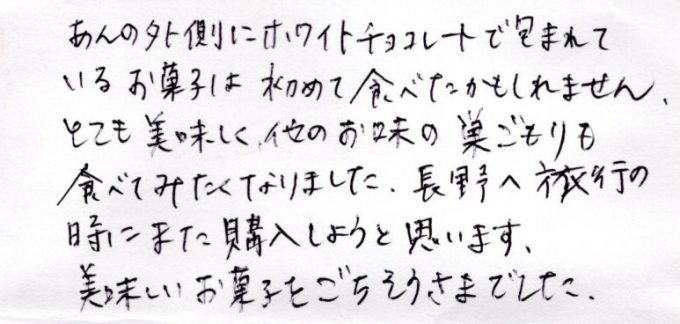 あんの外側にホワイトチョコレートで包まれて
いるお菓子は初めて食べたかもしれません、
とても美味しく、他のお味の巣ごもりも
食べてみたくなりました、長野へ旅行の
時にまた購入しようと思います、
美味しいお菓子をごちそうさまでした、